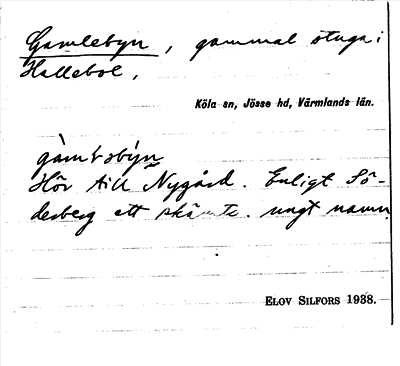 Gamlebyn, gammal stuga i
Hallebol,
Köla sn, Jösse hd, Värmlands län.
gàmɫəbýn
Hör till Nygård. Enligt Sö-
derberg ett skämts. ungt namn.
ELOV SILFORS 1938.